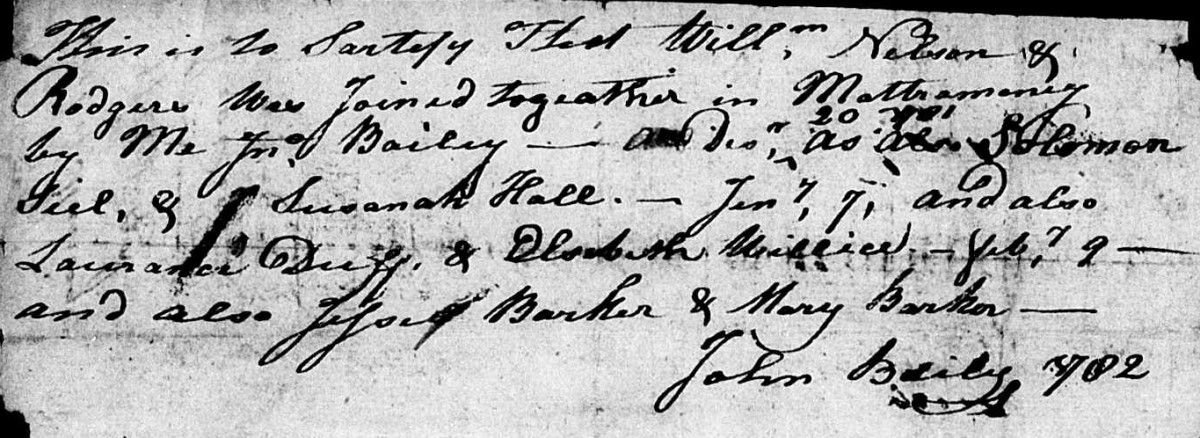 This is to Sartefy That Will,m Nelson &
Rodgers Was Joined togeather in Mattramoney
by Me Jno Bailey — Des,r 20 As also Solomon
Siel, & Susanah Hall. — Jen,y 7, and also
Laurance Duff. & Elsebeth — Feb,y 9 —
and also Jesse Barker & Mary Barker —
John Baily 1782